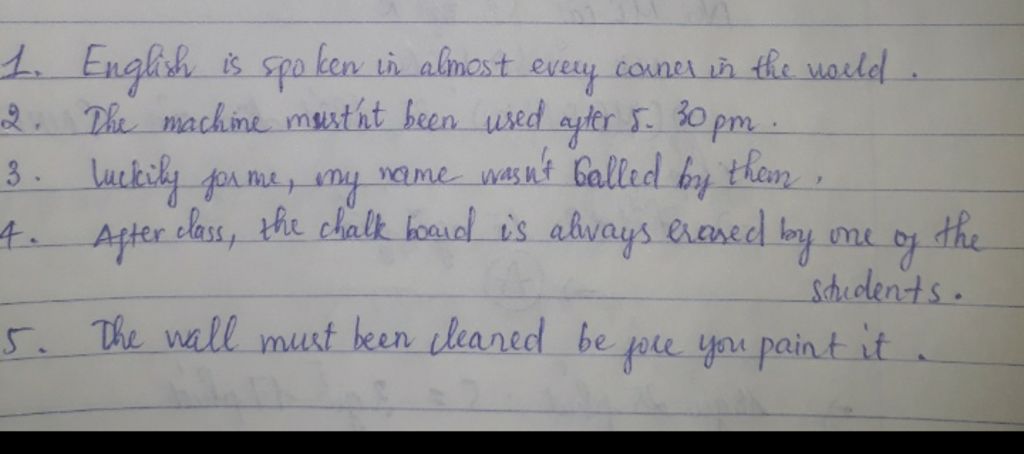 1. English is spoken in almost every corner in the world.
2. The machine mustn't been used after 5.30 pm.
3. luckily for me, my name wasn't called by them.
4. After class, the chalk board is always erased by one of the
students.
5. The wall must been cleaned before you paint it.